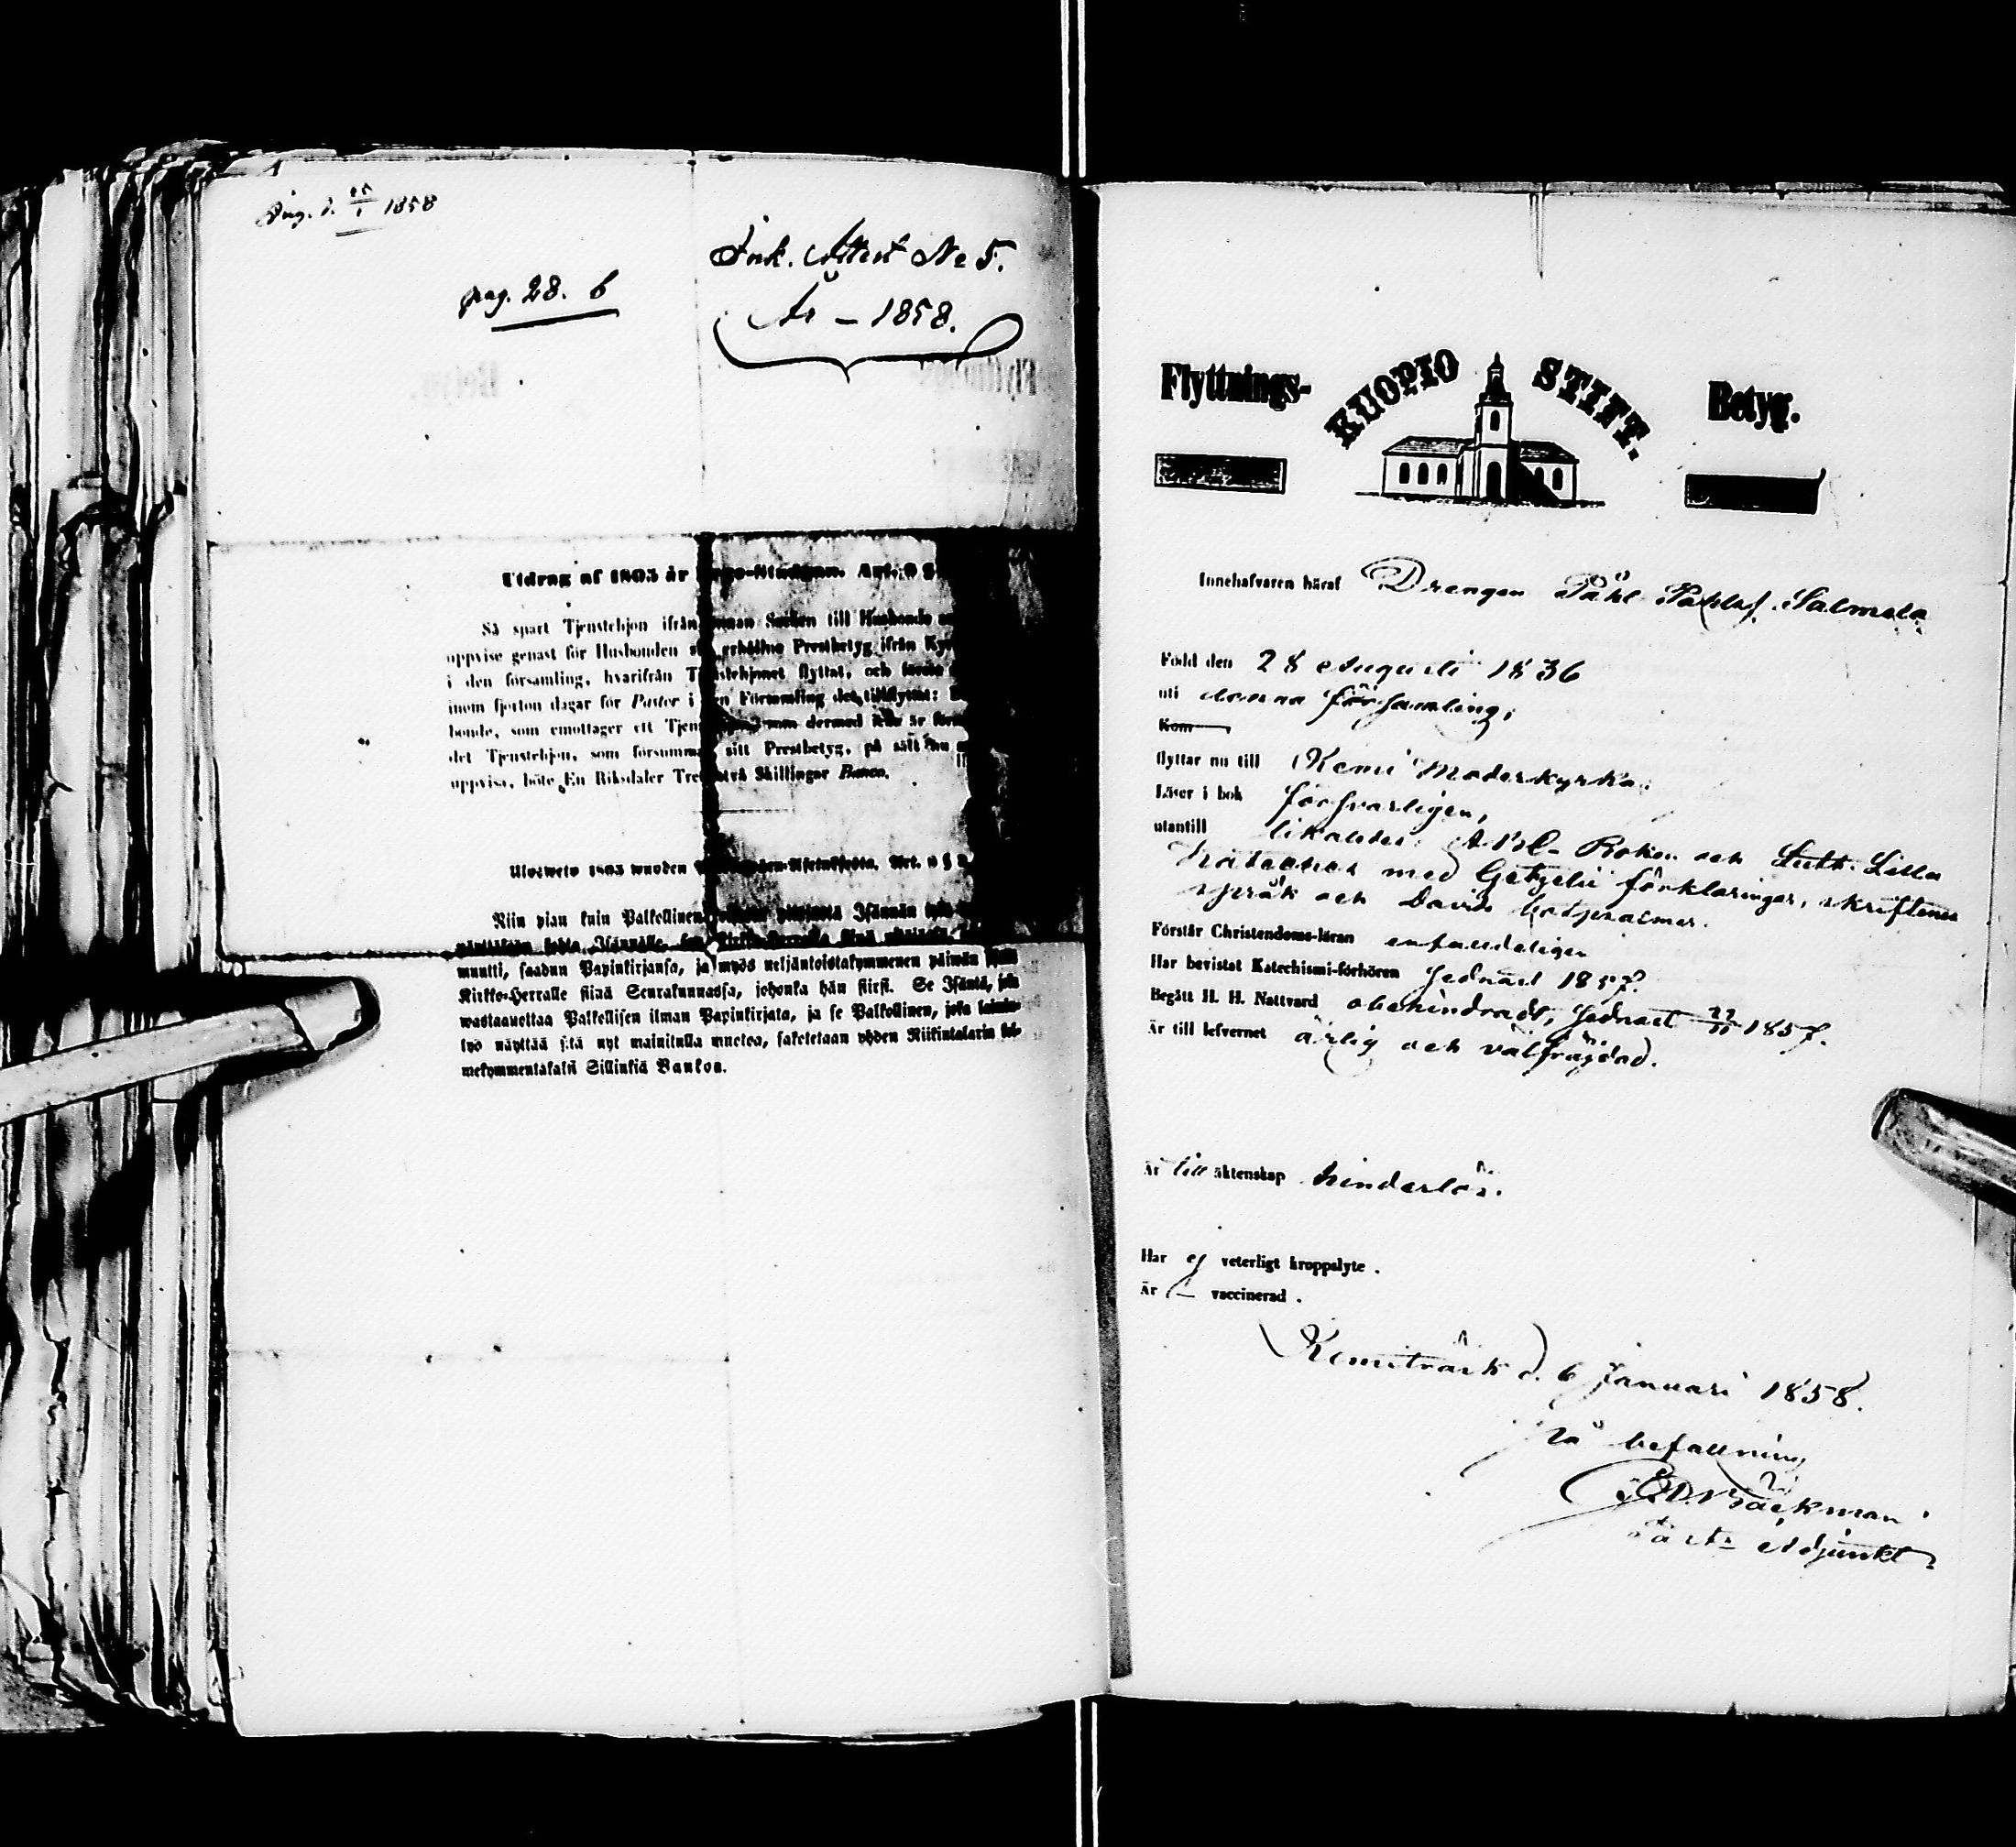 Ing. d. 1858
Ink. Attest No 5.
pag. 28. b
År – 1858.
Utdrag af 1805 år
Så snart Tjenstehjon ifrån annan Socken till Husbonde
uppvise genast för Husbonden erhållne Prestbetyg ifrån
i den församling, hvarifrån Tjenstehjonet flyttat, och
inom fjorton dagar för Pastor i den Församling det tillflyttat:
bonde, som emottager ett dermed
det Tjenstehjon, som försummar sitt Prestbetyg, på sätt
uppvisa, böte En Riksdaler Trettiotvå Skillingar Banco.
Ulosweto 1805 wuoden Art.
Niin pian kuin Palkollinen Isännän
muutti, saadun Papinkirjansa, ja myös neljäntoistakymmenen päiwän
Kirkko-Herralle siinä Seurakunnassa, johonka hän siirsi. Se Isäntä, joka
wastaanottaa Palkollisen ilman Papinkirjata, ja se Palkollinen, joka laimin-
lyö näyttää sitä nyt mainitulla muotoa, saketetaan yhden Riikintalarin kol-
mekymmentäkaksi Sillinkiä Bankon.
Flyttnings- KUOPIO STIFT. Betyg.
Innehafvaren häraf Drengen Påhl Påhlsf. Salmela
Född den 28 Augusti 1836
uti denna församling;
Kom
flyttar nu till Kemi Moderkyrka.
Läser i bok försvarligen,
utantill likaledes ABC-Boken och Luth. Lilla
Kateches med Getzelii förklaringar, skriftenes
språk och Davids botpsalmer.
Förstår Christendoms-läran enfaldeligen
Har bevistat Katechismi-förhören sednast 1857.
Begått H. H. Nattvard obehindradt, sednast 1857.
Är till lefvernet ärlig och välfräjdad.
Är till äktenskap hinderlös.
Har ej veterligt kroppslyte.
Är – vaccinerad.
Kemiträsk d. 6 Januari 1858.
På befallning
Bäckman
Past: Adjunkt